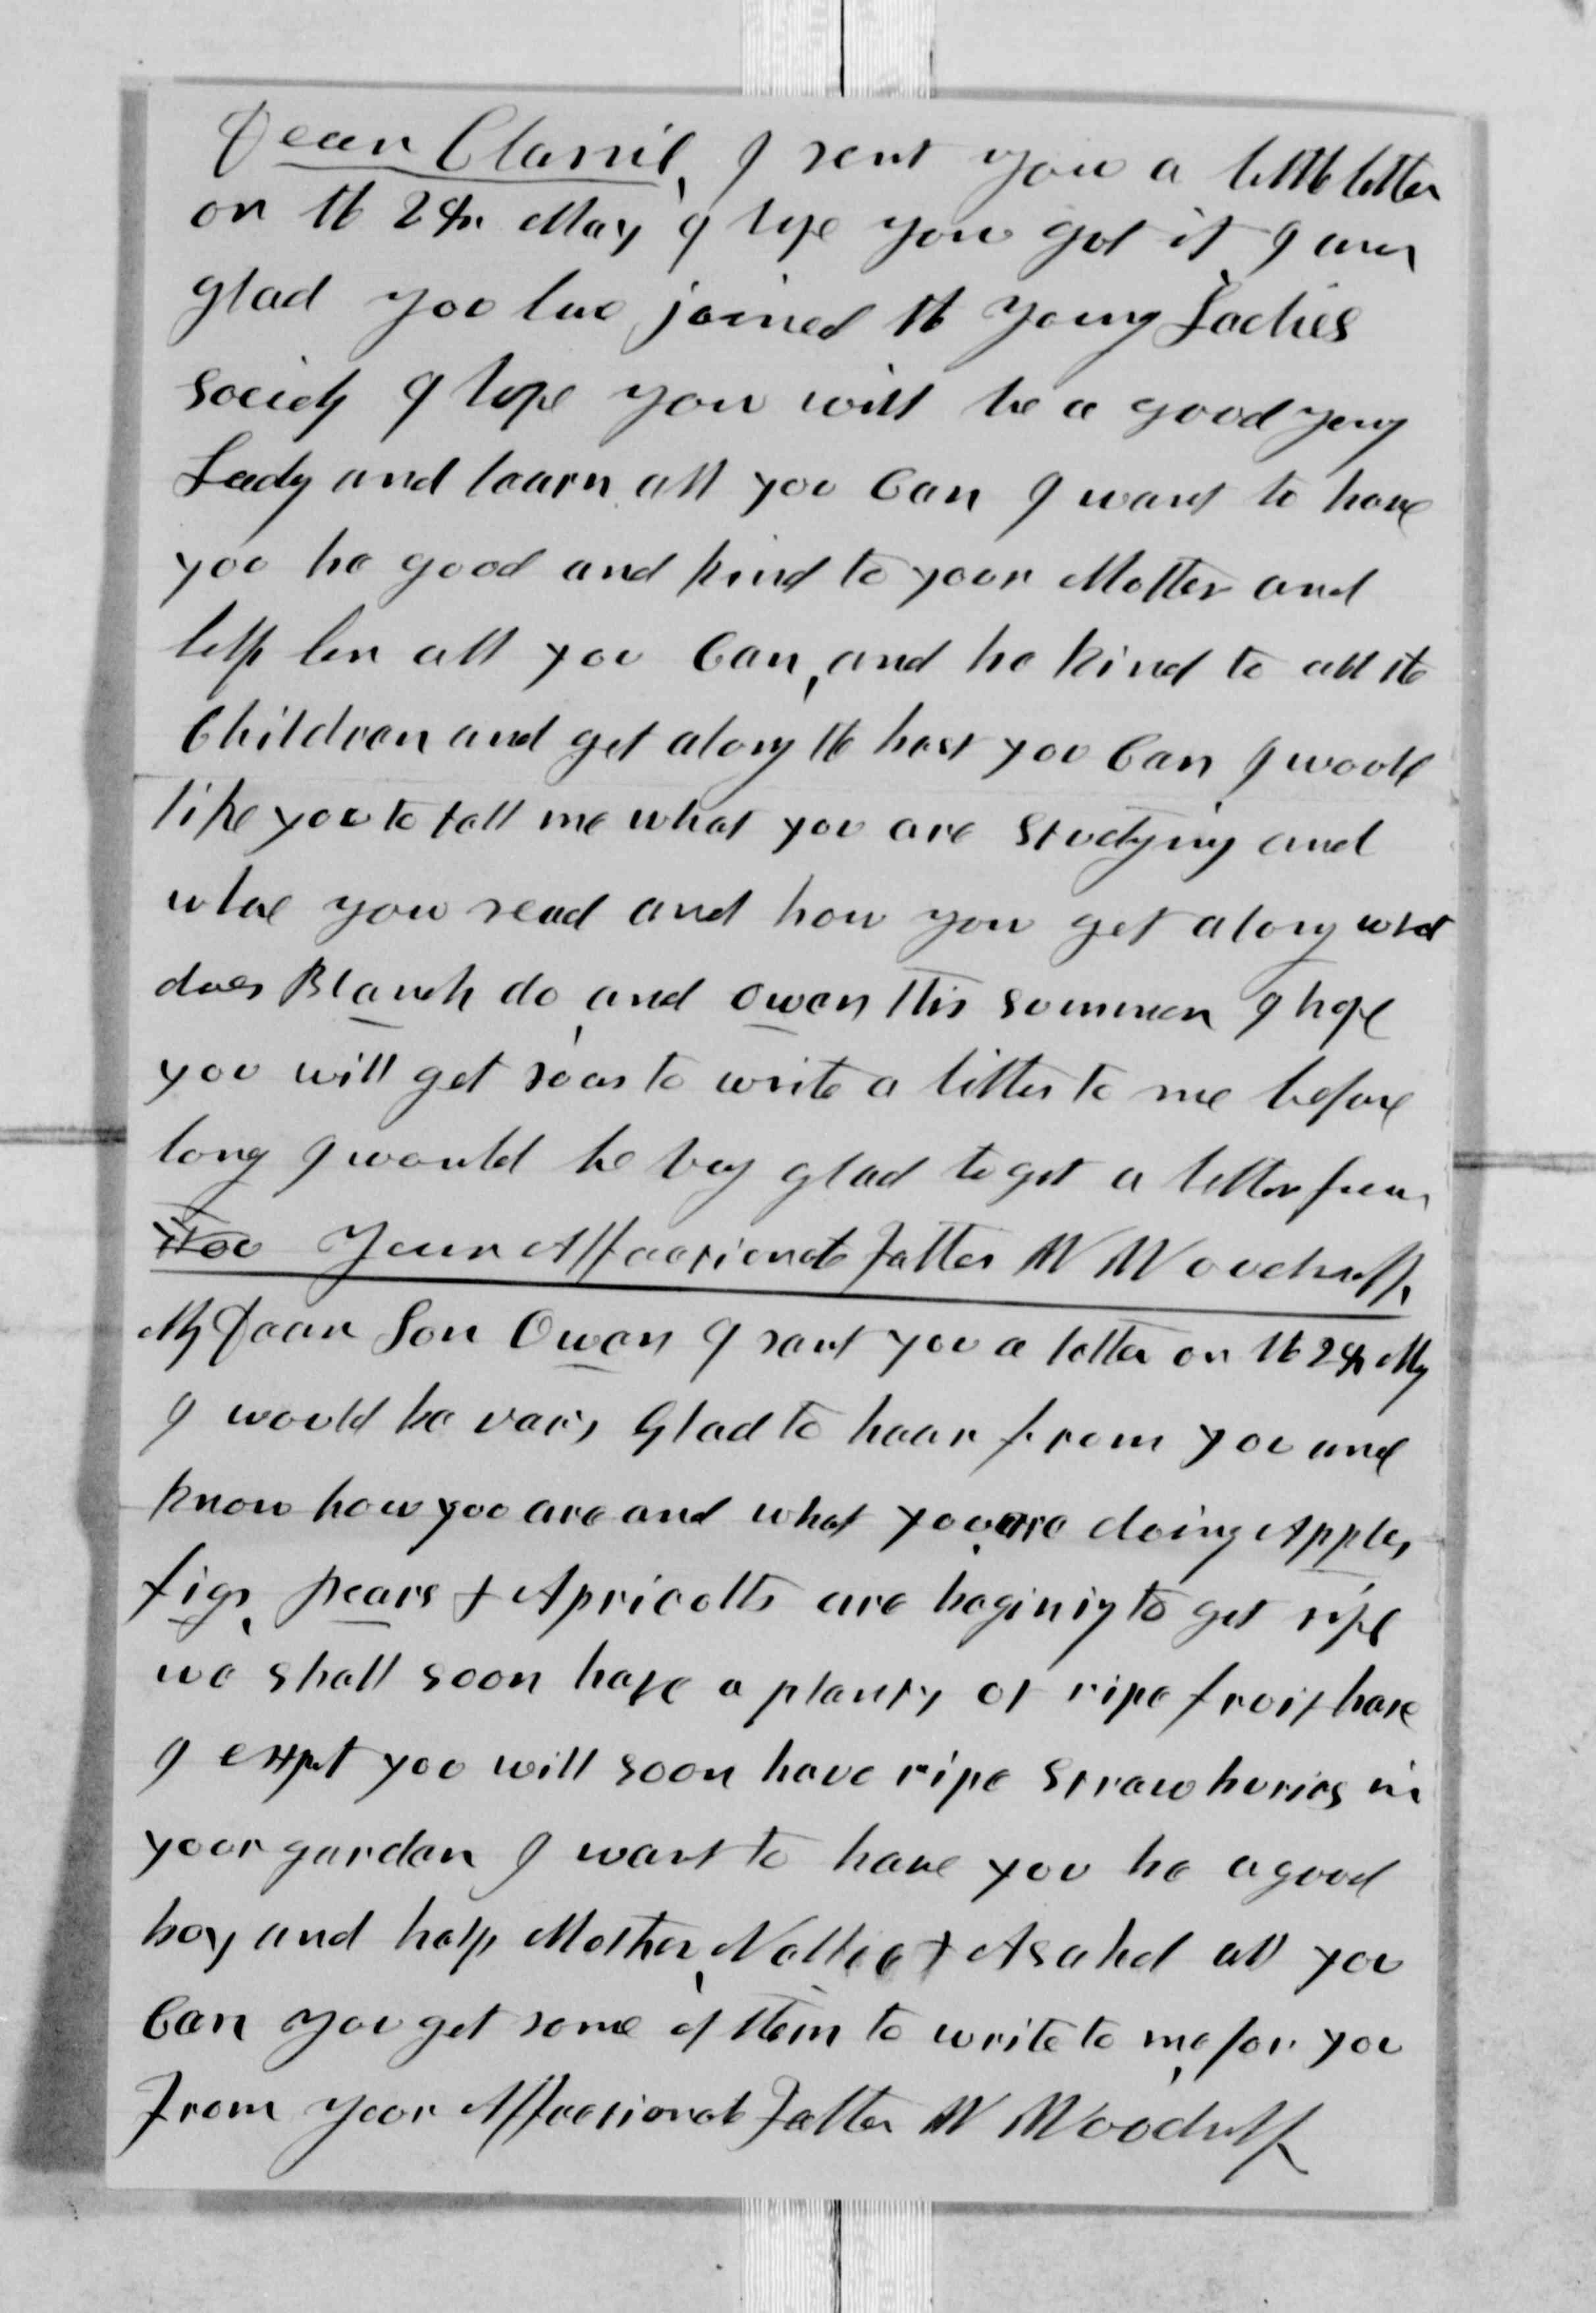 Dear Clarril, I sent you a little letter
on the 24th May I hope you got it I am
glad you have joined the young Ladies
society I hope you will be a good young
Lady and learn all you Can I want to have
you be good and kind to your Mother and
help her all you Can, and be kind to all the
Children and get along the best you Can I would
like you to tell me what you are studying and
what you read and how you get along what
does Blanch do, and Owen this summer I hope
you will get so as to write a litter to me before
long I would be very glad to get a letter from
you Your Affectionate Father W Woodruff,
My Dear Son Owen I sent you a letter on the 24th My
I would be very Glad to hear from you and
know how you are and what you are doing Apples,
figs, pears & Apricotts are begining to get ripe
we shall soon have a plenty of ripe fruit here
I expet you will soon have ripe strawburies in
your garden I want to have you be a good
boy and help Mother, Nellie & Asahel all you
Can you get some of them to write to me, for you
From your Affectionate Father W Woodruff